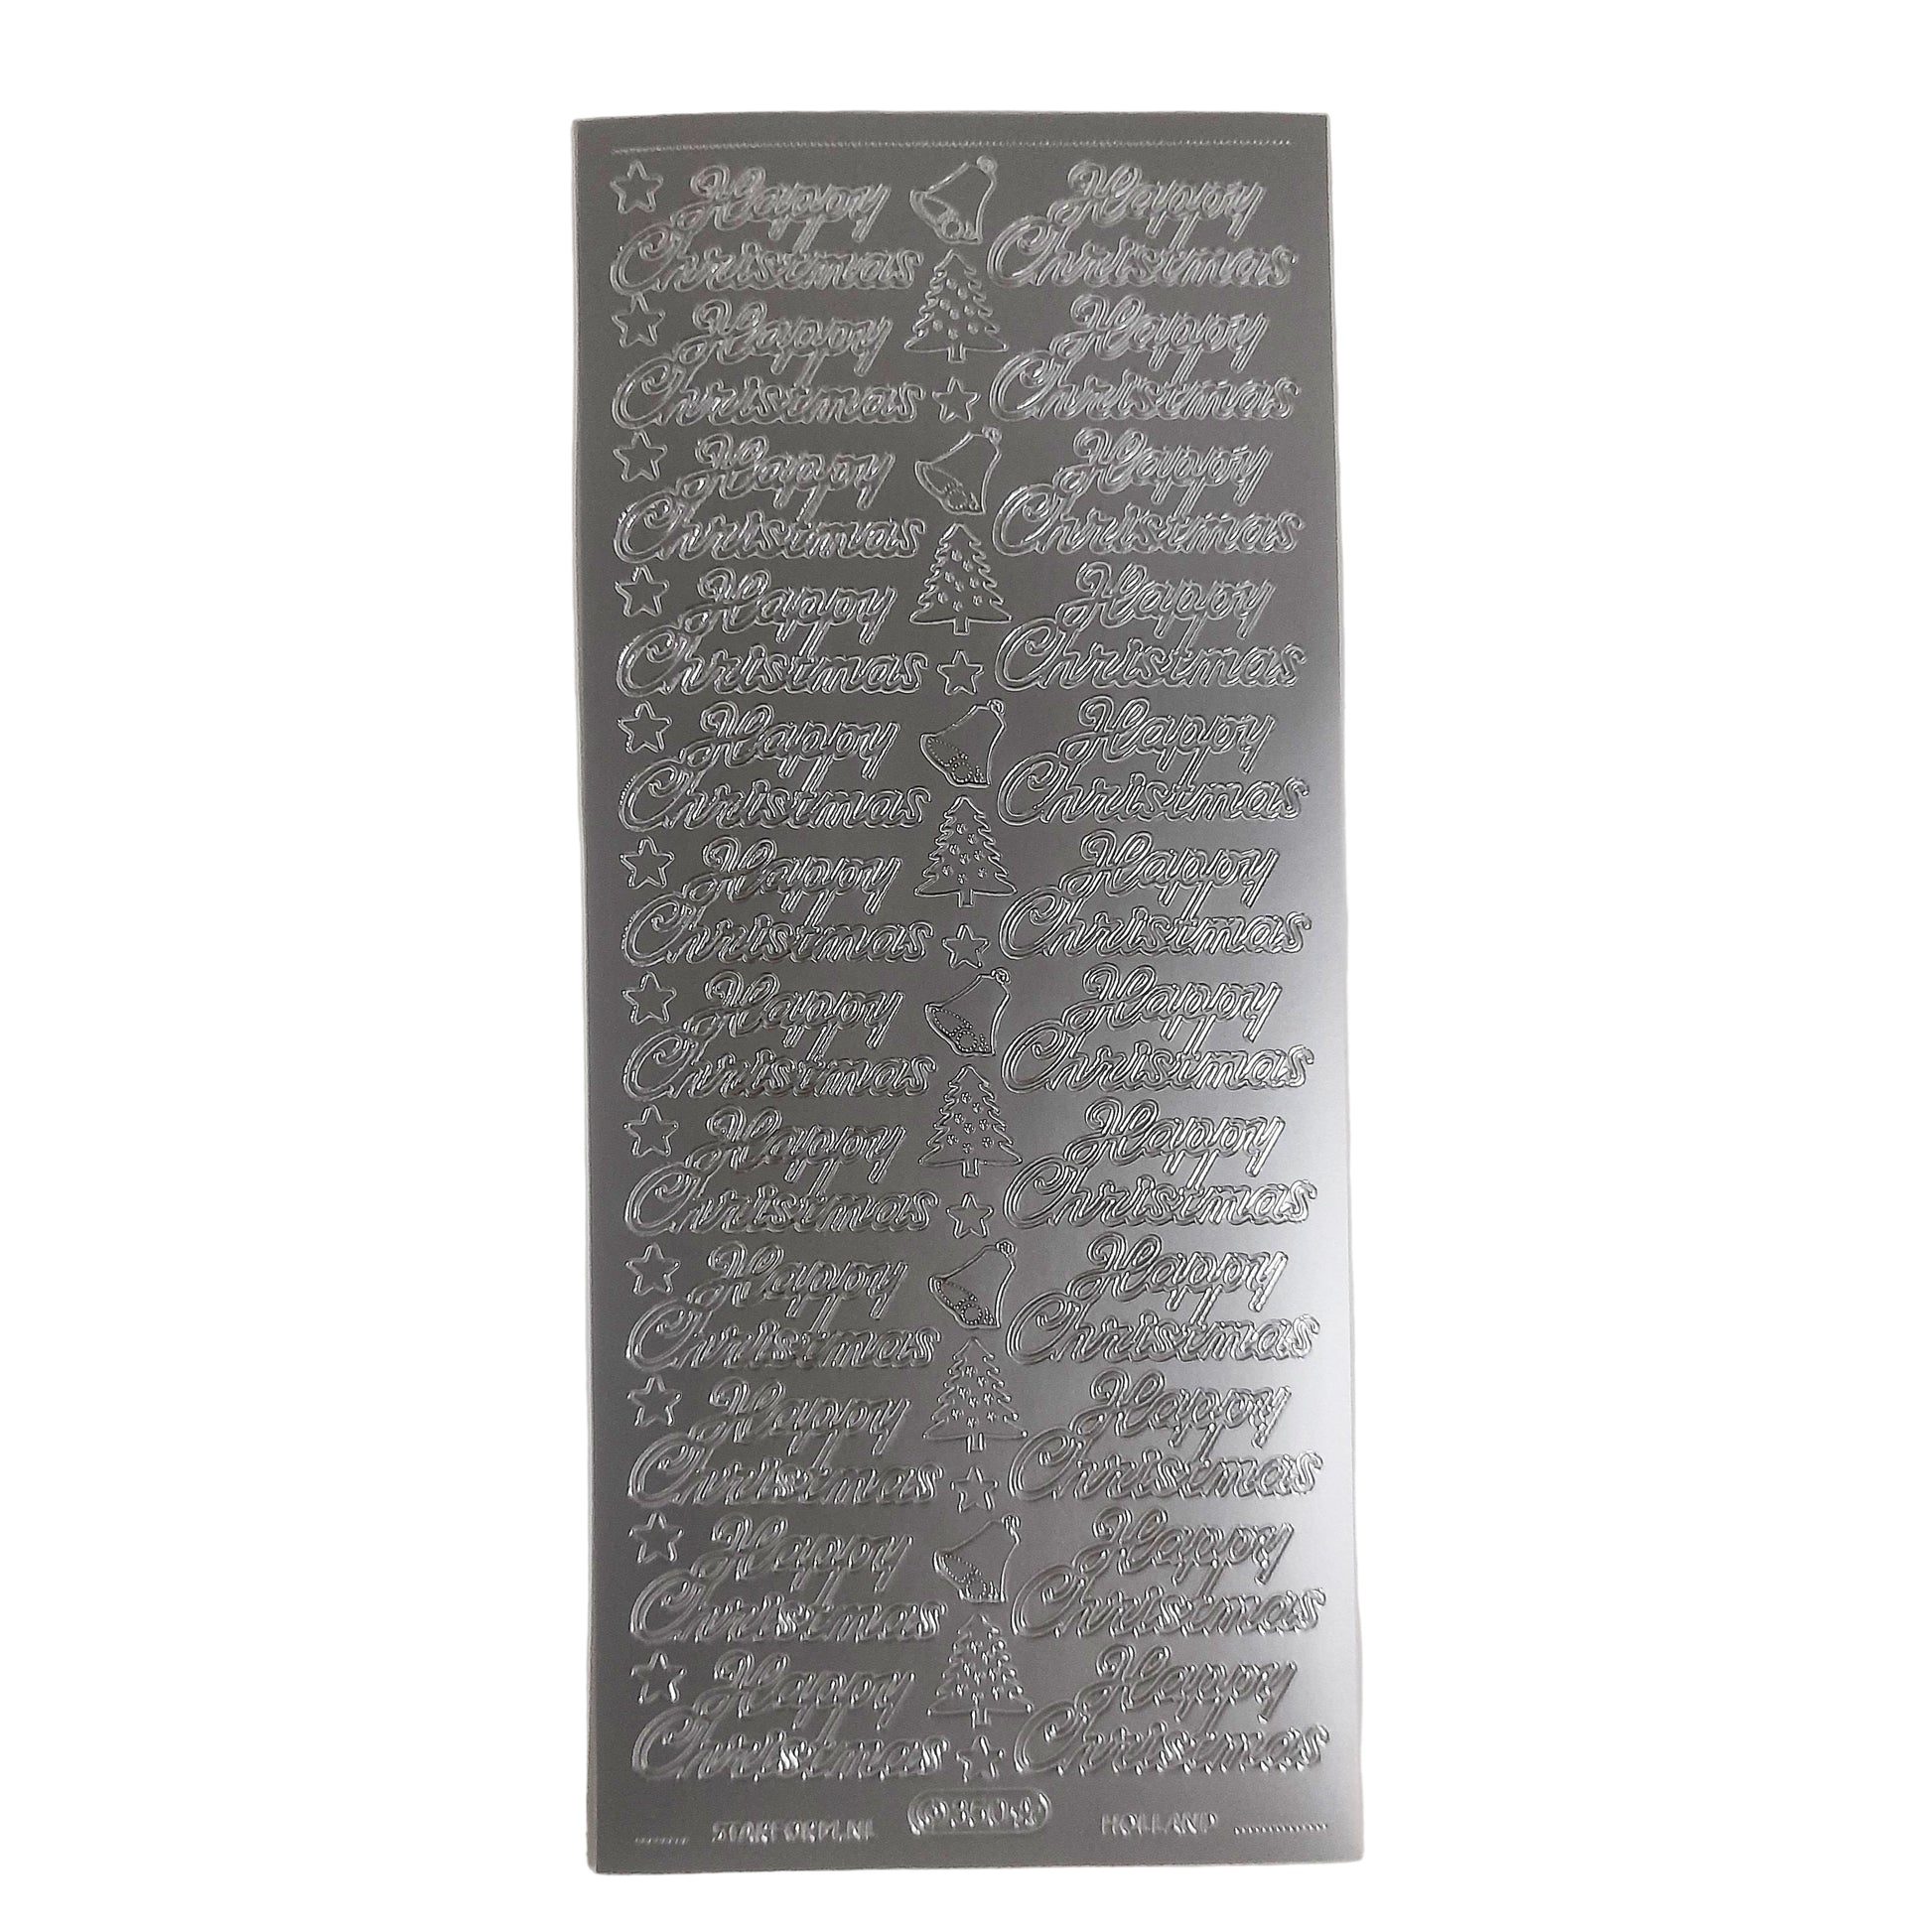 Happy
Christmas
Happy
Christmas
Happy
Christmas
Happy
Christmas
Happy
Christmas
Happy
Christmas
Happy
Christmas
Happy
Christmas
Happy
Christmas
Happy
Christmas
Happy
Christmas
Happy
Christmas
Happy
Christmas
Happy
Christmas
Happy
Christmas
Happy
Christmas
Happy
Christmas
Happy
Christmas
Happy
Christmas
Happy
Christmas
Happy
Christmas
Happy
Christmas
Happy
Christmas
Happy
Christmas
STARFORM.NL
HOLLAND